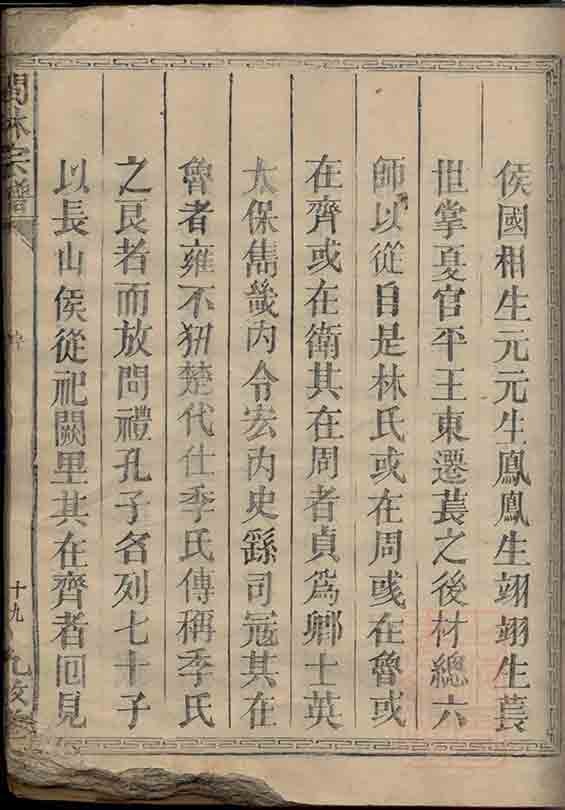 侯國相生元元生鳳鳳生翊翊生萇
世掌夏官平王東遷萇之後材總六
師以從自是林氏或在周或在魯或
在齊或在衛其在周者貞為鄉士英
太保雋畿內令宏內史繇司寇其在
魯者雍不狃楚代仕季氏傳稱季氏
之良者而放問禮孔子各列七十子
以長山侯從祀闕里其在齊者回見
林宗譜
十九